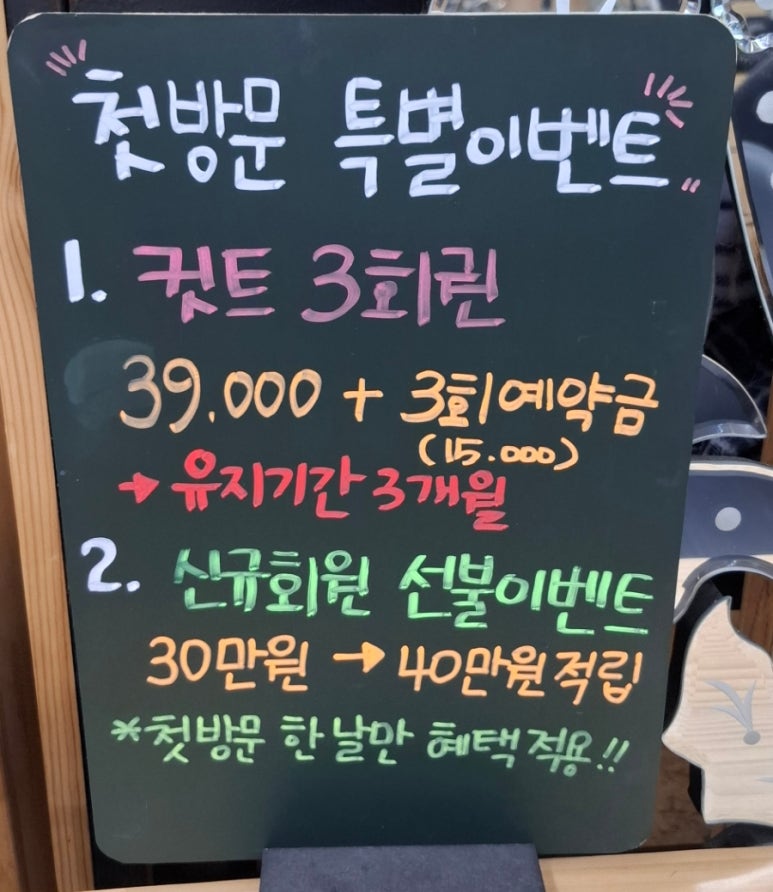 첫방문 특별이벤트
1. 컷트 3회권
39.000 + 3회예약금
(15.000)
→ 유지기간 3개월
2. 신규회원 선불이벤트
30만원 → 40만원적립
*첫방문 한 날만 혜택적용!!